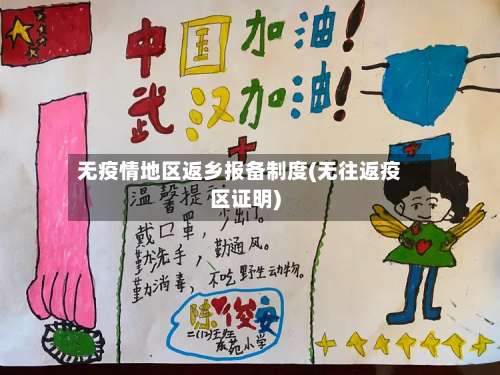 中国加油!
武汉加油!
无疫情地区返乡报备制度(无往返疫
区证明)
温馨提示
戴口罩,少出门。
勤洗手,勤通风。
勤消毒,不吃野生动物。
陈俊安
二(12)班
东苑小学